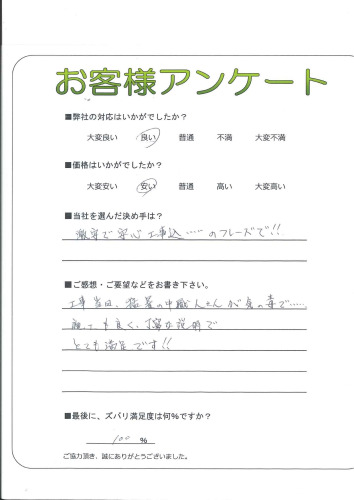 お客様アンケート
■弊社の対応はいかがでしたか？
大変良い 良い 普通 不満 大変不満
■価格はいかがでしたか？
大変安い 安い 普通 高い 大変高い
■当社を選んだ決め手は？
激安で安心工事込……のフレーズで!!
■ご感想・ご要望などをお書き下さい。
工事当日、猛暑の中職人さんが気の毒で……
も良く、丁寧な説明で
とても満足です!!
■最後に、ズバリ満足度は何%ですか？
100 %
ご協力頂き、誠にありがとうございました。